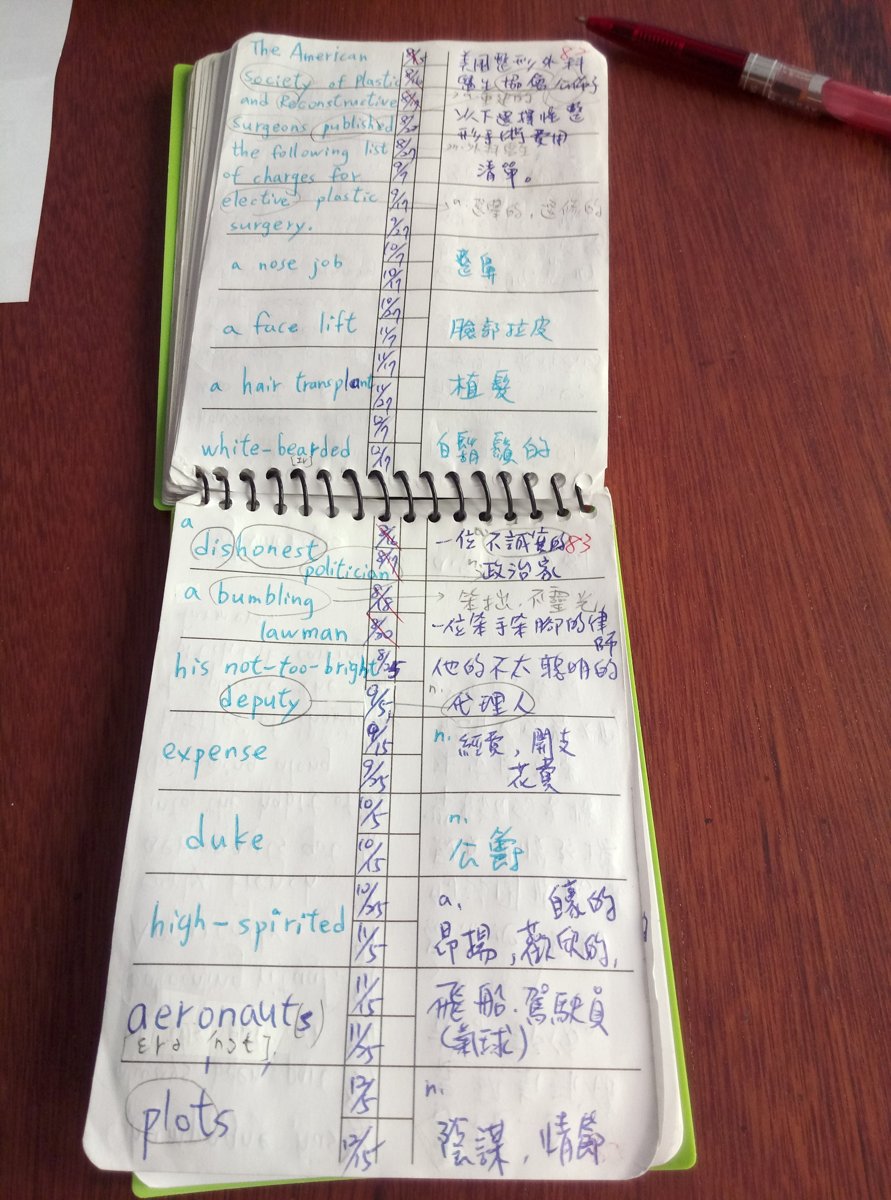 The American
Society of Plastic
and Reconstructive
Surgeons published
the following list
of charges for
elective plastic
surgery.
8/27
9/7
9/17
9/27
10/7
10/17
10/27
11/7
11/17
11/27
12/7
12/17
83
美国整形外科
醫生協會公佈了
以下選擇性整
形手術費用
清單。
a. 選舉的,選修的
a nose job
整鼻
a face lift
臉部拉皮
a hair transplant
植髮
white-bearded
白鬍鬚的
a
dishonest
politician
8/16
8/17
一位不誠實的83
n.政治家
a bumbling
lawman
8/18
8/20
笨拙.不靈光
一位笨手笨腳的律
師
his not-too-bright
deputy
8/25
9/5
他的不太聰明的
n.
代理人
expense
9/15
9/25
n. 經費,開支
花費
duke
10/5
10/15
n.
公爵
high-spirited
10/25
11/5
a.
昂揚,歡欣的,
aeronaut(s)
11/15
11/25
飛船.駕駛員
(氣球)
plots
12/5
12/15
n.
陰謀,情節